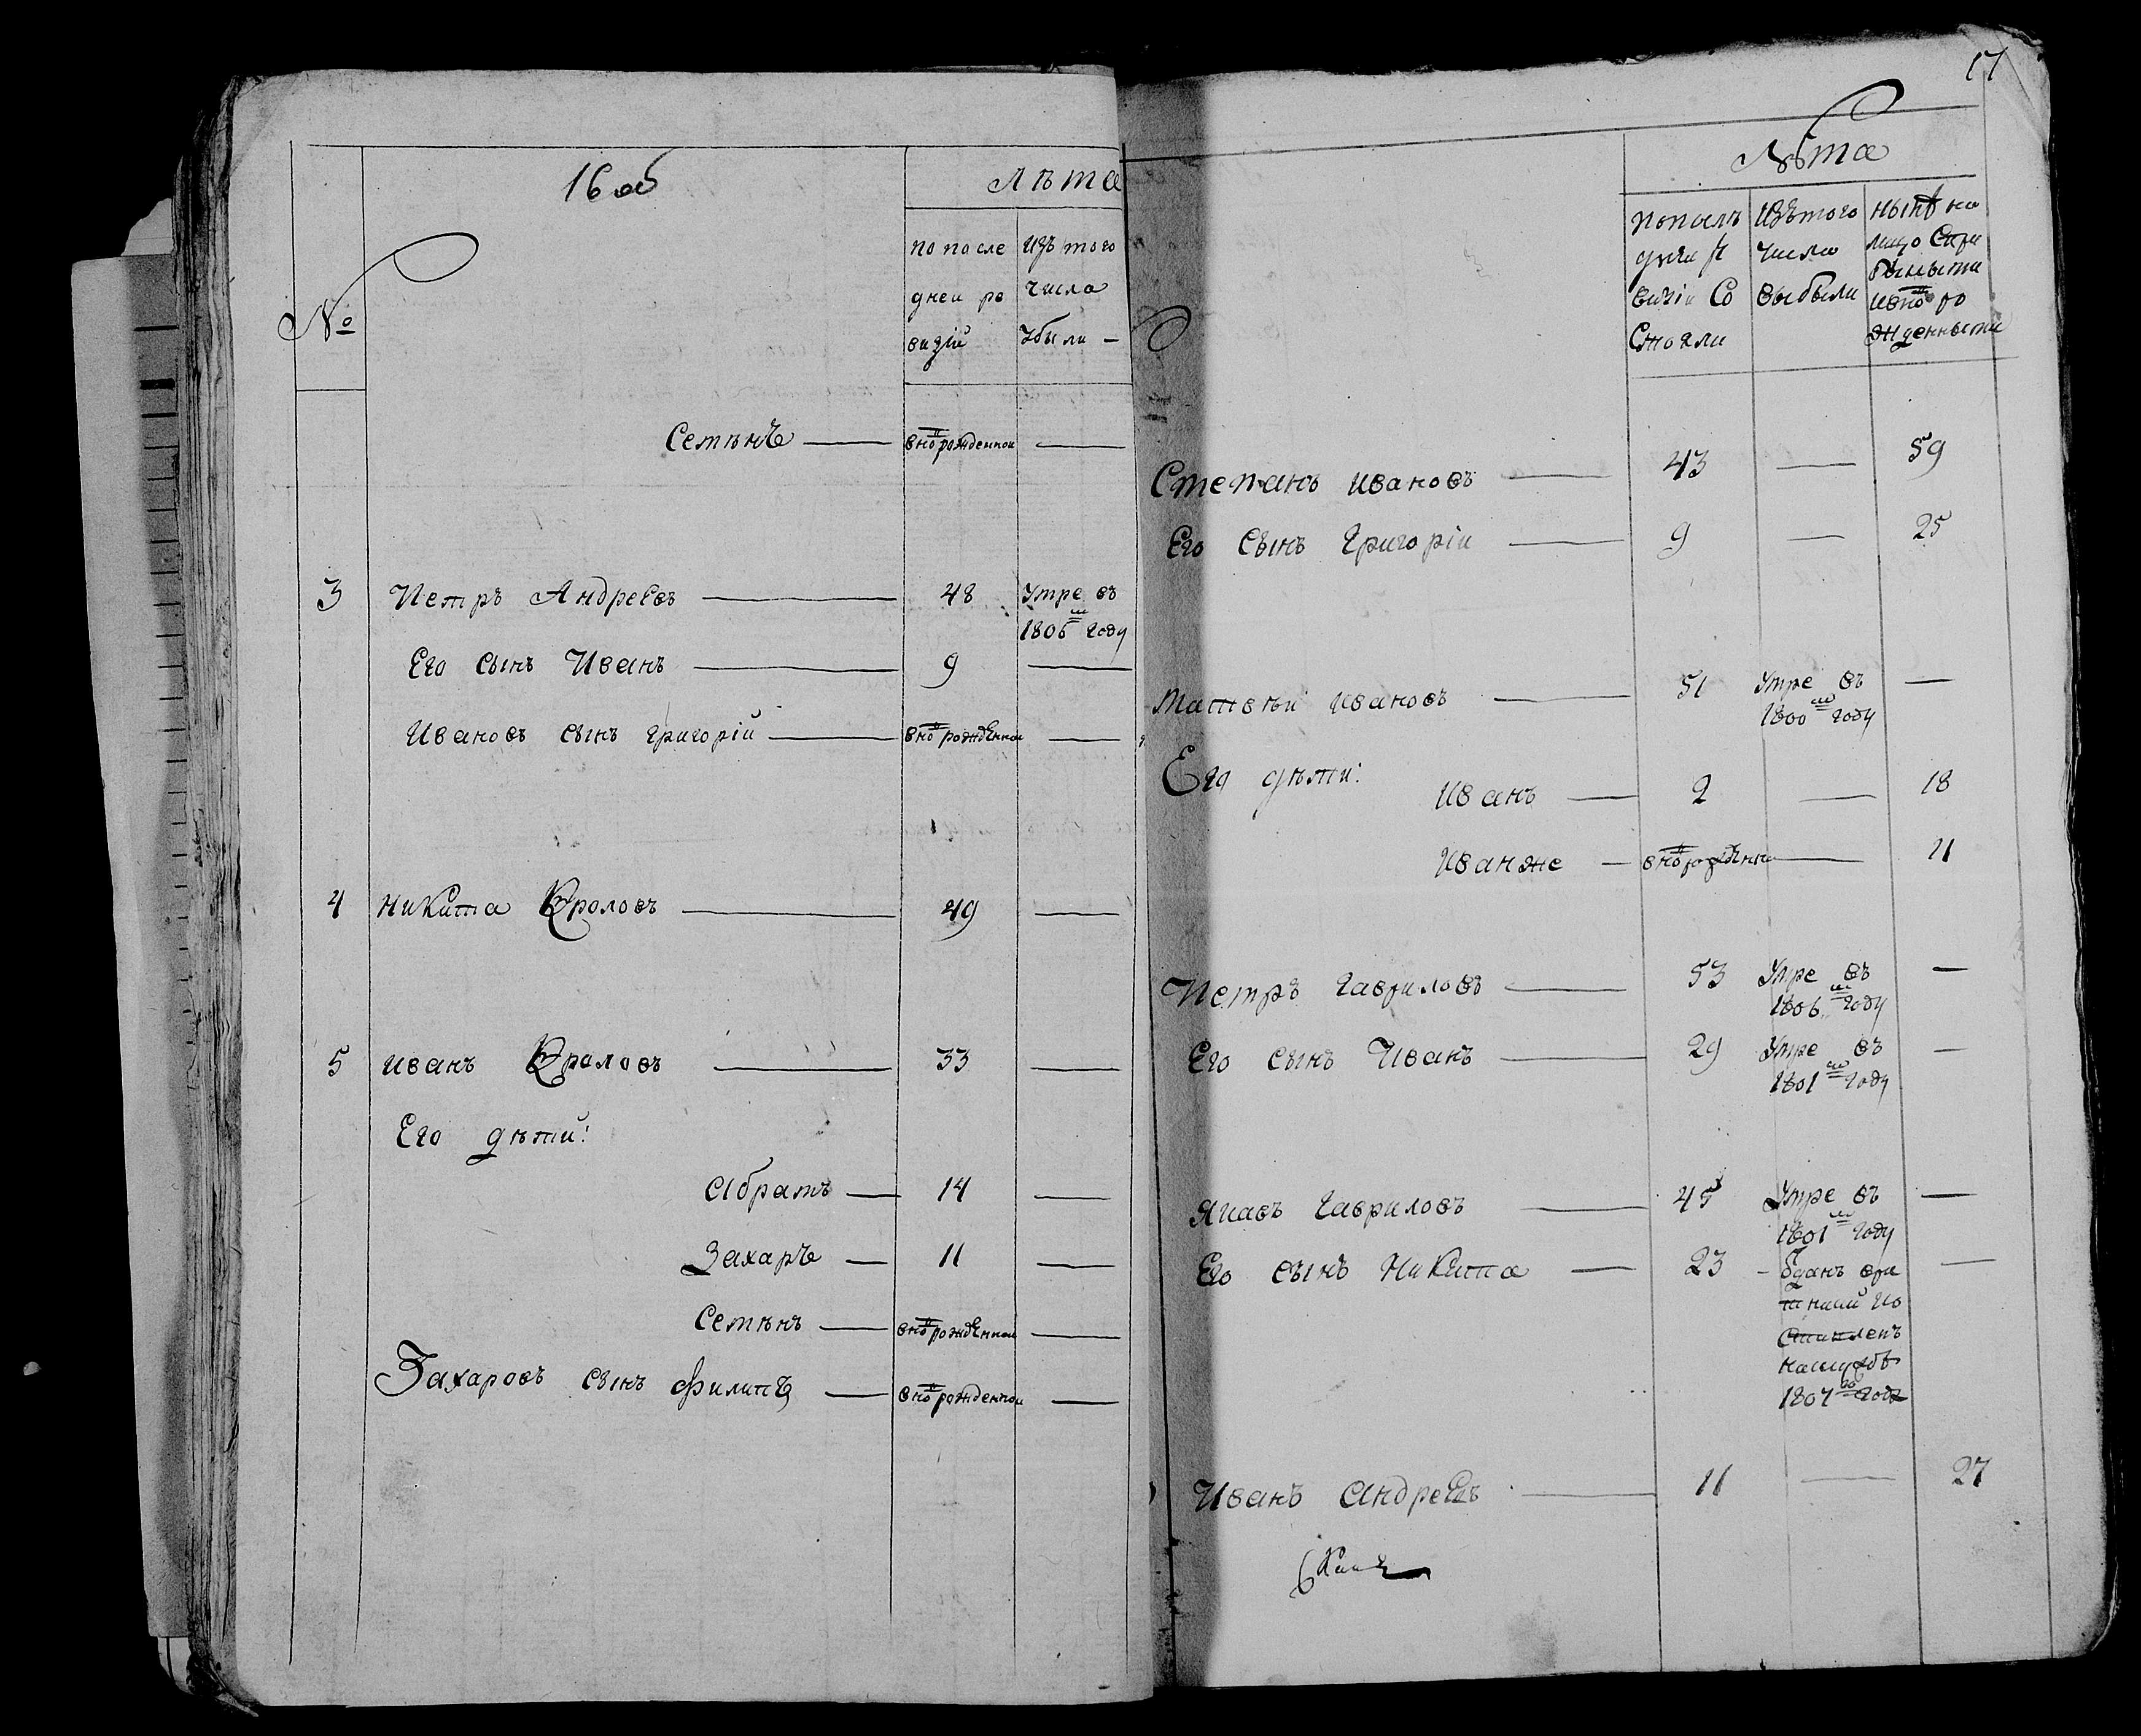 16 об
№
Лѣта
по после
дней ре
визіи
Изъ того
числа
Убыли —
Семѣнъ — вно рожденной —
3 Петръ Андреевъ — 48 Умре въ
1806 году
Его сынъ Иванъ — 9 —
Ивановъ сынъ григорій — вно рожденной —
4 Никита Фроловъ — 49 —
5 Иванъ Фроловъ — 33 —
Его дѣти:
Абрамъ — 14 —
Захаръ — 11 —
Семѣнъ — вно рожденной —
Захаровъ сынъ Филипъ — вно рожденной —
17
Лѣта
Изътого
числа
выбыли
Нынѣ на
лицо Спри
былыми
ивно ро
жденными
Состояли
Степанъ Ивановъ — 43 — 59
Его Сынъ Григоріи — 9 — 25
Матвѣи Ивановъ — 51 Умре въ —
1800 году
Его дѣти:
Иванъ — 2 — 18
Иванже — вно рожденно — 11
Петръ Гавриловъ — 53 Умре въ —
1806 году
Его сынъ Иванъ — 29 Умре въ —
1801 году
Гавриловъ — 45 Умре въ —
1801 году
Его сынъ Никита — 23 —
1807 году
Иванъ Андреевъ — 11 — 27